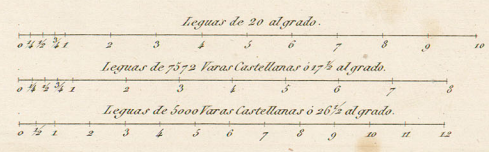 Leguas de 20 al grado.
0 ¼ ½ ¾ 1 2 3 4 5 6 7 8 9 10
Leguas de 7572 Varas Castellanas ó 17½ al grado.
0 ¼ ½ ¾ 1 2 3 4 5 6 7 8
Leguas de 5000 Varas Castellanas ó 26½ al grado.
0 ½ 1 2 3 4 5 6 7 8 9 10 11 12